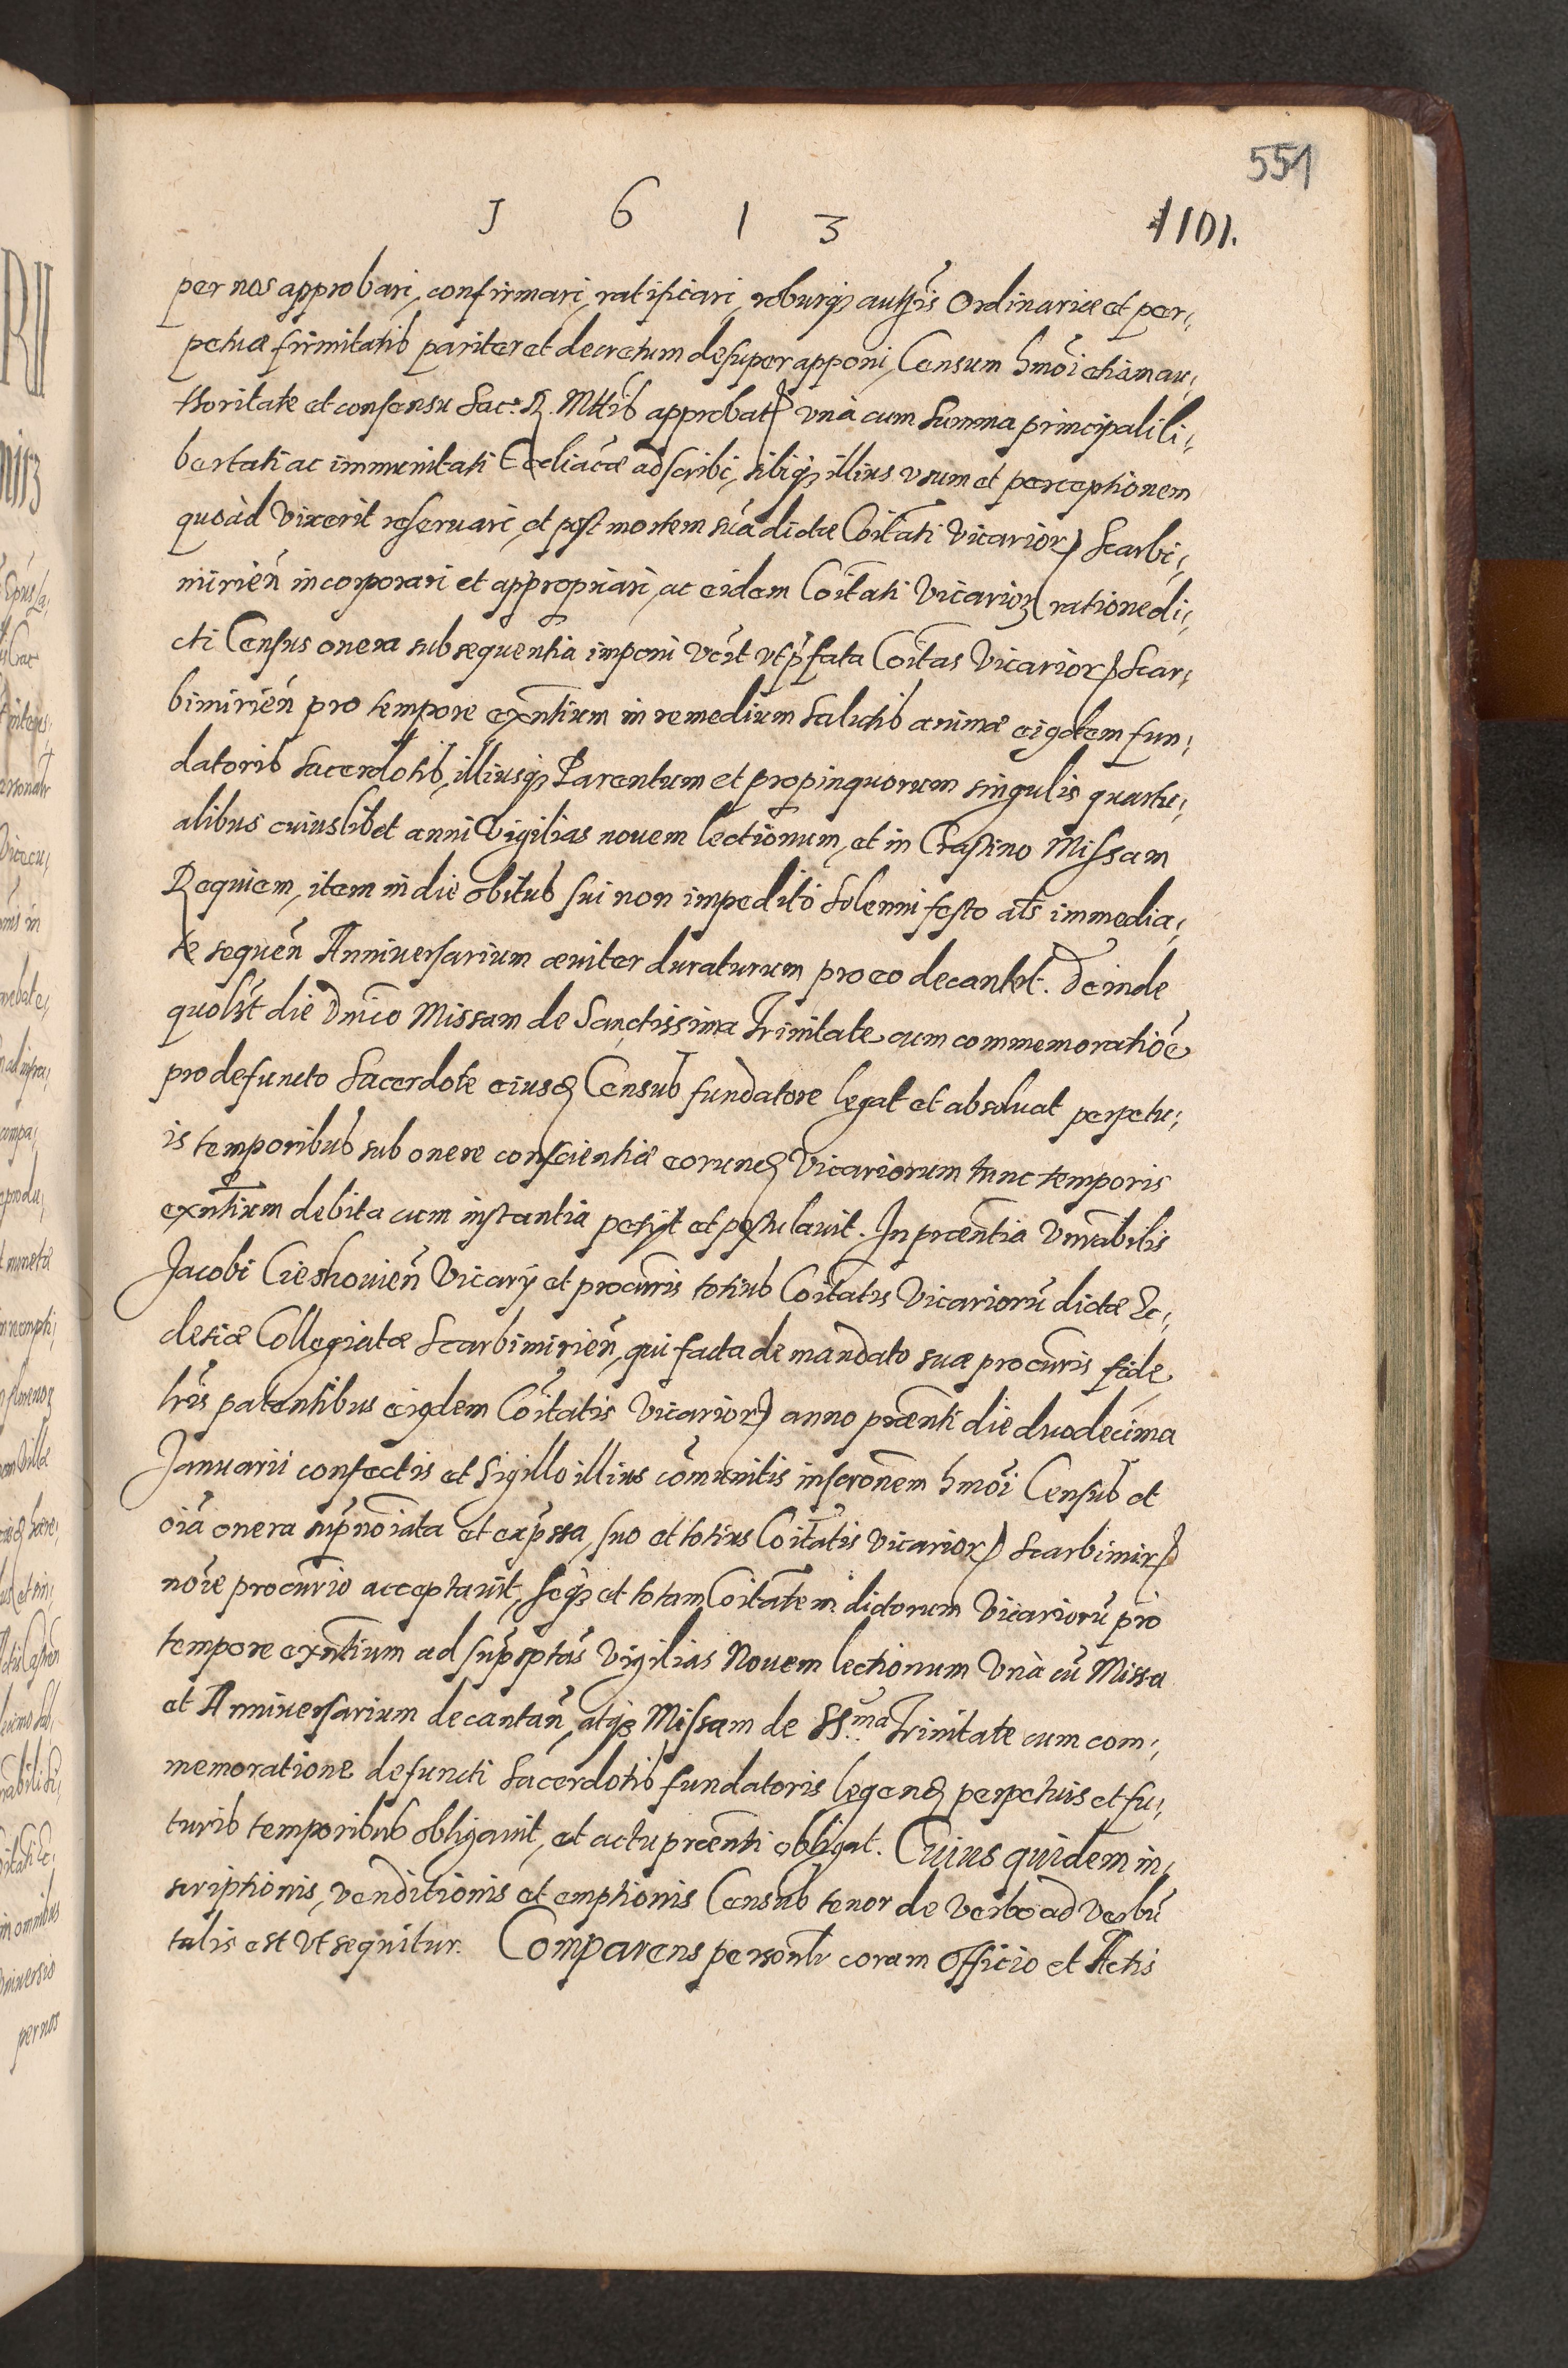 551
1 6 1 3
1101.
per nos approbari, confirmari, ratificari, roburq3 autħtis Ordinariæ et per,
petuæ firmitatis pariter et decretum desuper apponi, Censum hmōi etiam au,
thoritate et consensu Sac: R. Mttis approbat. vnà cum Summa principali li,
bertati ac immunitati Eccliacæ adscribi, sibiq3 illius vsum et perceptionem
quoàd vixerit reseruari, et post mortem suā dictæ Coitati Vicarior. Scarbi,
mirien̄ incorporari et appropriari, ac eidem Coitati Vicarior. ratione di,
cti Census onera subsequentia imponi Vclt vt p̄fata Coitas Vicarior. Scar,
bimirien̄ pro tempore exn̄tium in remedium salutis animæ eigdem fun,
datoris Sacerdotis, illiusq3 Parentum et propinquorum singulis quartu,
alibus cuiuslibet anni Vigilias nouem lectionum, et in Crastino Missam
Requiem, item in die obitus sui non impedito Solenni festo als immedia,
te sequen̄ Anniuersarium æuiter duraturum pro eo decantet. Deinde
quolibt die Dnico Missam de Sanctissima Trinitate cum commemoratiōe
pro defuncto Sacerdote eiusd. Census fundatore legat et absoluat perpetu,
is temporibus sub onere conscientiæ eorund. Vicariorum tunc temporis
exn̄tium debita cum instantia petijt et postulauit. In præsentia Vnrabilis
Jacobi Cieshouien̄ Vicarij et procuris totius Coitatis Vicarioru dictæ Ec,
clesiæ Collegiatæ Scarbimirien̄, qui facta de mandato suæ procuris fide
lris patentibus eigdem Coitatis Vicarior. anno præsenti die duodecima
Januarii confectis et Sigillo illius comunitis inscronem hmōi Census et
oiā onera supnoiata et exp̄ssa, suo et totius Coitatis Vicarior. Scarbimir.
noie procurio acceptauit, seq3 et totam Coitatem dictorum Vicarioru pro
tempore exn̄tium ad sup̄sptas Vigilias Nouem lectionum Vnà cu Missa
et Anniuersarium decantan̄, atq3 Missam de SS.ma Trinitate cum com,
memoratione defuncti Sacerdotis fundatoris legend. perpetuis et fu,
turis temporibus obligauit, et actu præsenti obligat. Cuius quidem in,
scriptionis, venditionis et emptionis Census tenor de verbo ad verbu
talis est vt sequitur. Comparens personlr coram Officio et Actis